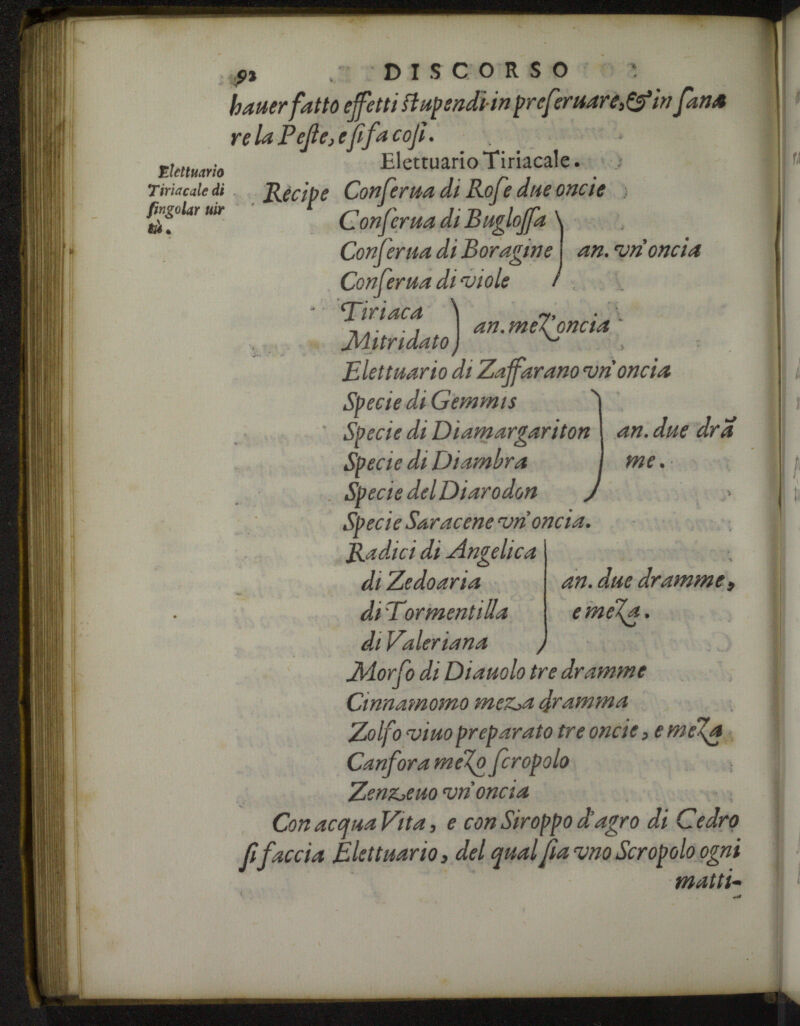 92 DISCORSO
hauer fatto effetti stupendi in preseruare, & in sana
re la Peste, e si fa cosi.
Elettuario
Tiriacale di
singolar uir
tù.
Elettuario Tiriacale.
Recipe Conserua di Rose due oncie
Conserua di Buglossa
Conserua di Boragine an. vn' oncia
Conserua di viole
Tiriaca
Mitridato an. mez'oncia
Elettuario di Zaffarano vn' oncia
Specie di Gemmis
Specie di Diamargariton an. due drã
Specie di Diambra me.
Specie del Diarodon
Specie Saracene vn' oncia.
Radici di Angelica
di Zedoaria an. due dramme,
di Tormentilla e meza.
di Valeriana
Morso di Diauolo tre dramme
Cinnamomo meza dramma
Zolfo viuo preparato tre oncie, e meza
Canfora mezo scropolo
Zenzeuo vn' oncia
Con acqua Vita, e con Siroppo d'agro di Cedro
si faccia Elettuario, del qual sia vno Scropolo ogni
matti-